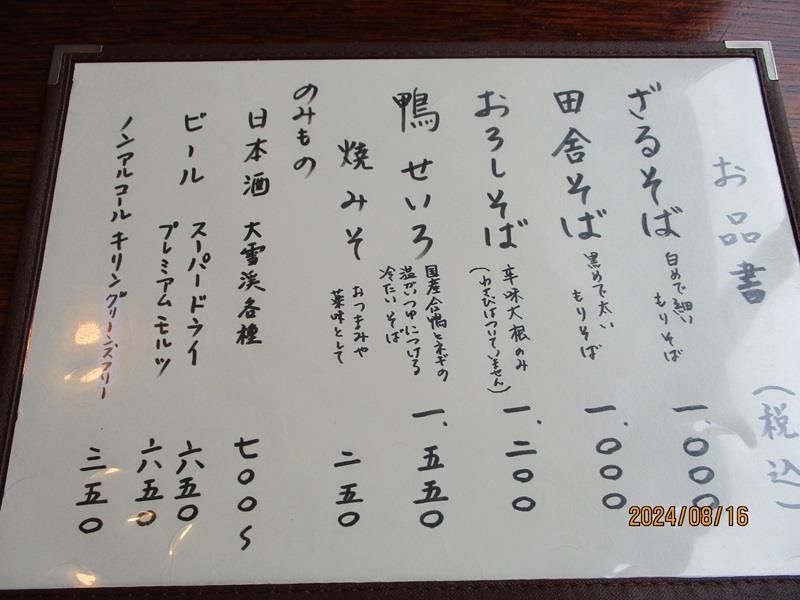 お品書
(税込)
ざるそば 白めで細い もりそば 一、〇〇〇
田舎そば 黒めで太い もりそば 一、〇〇〇
おろしそば 辛味大根のみ (わさびはついていません) 一、二〇〇
鴨せいろ 国産合鴨とネギの 温かいつゆにつける 冷たいそば 一、五五〇
焼みそ おつまみや 薬味として 二五〇
のみもの
日本酒 大雪渓各種 七〇〇～
ビール スーパードライ 六五〇
プレミアムモルツ 六五〇
ノンアルコール キリングリーンズフリー 三五〇
2024/08/16